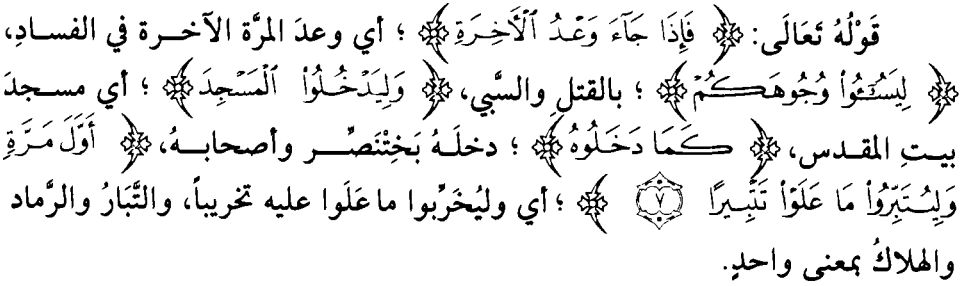 قَوْلُهُ تَعَالَى: ﴿ فَإِذَا جَآءَ وَعْدُ ٱلْأَخِرَةِ ﴾ ؛ أي وعدَ المرَّة الآخرة في الفسادِ،
﴿ لِيَسُـُٔواْ وُجُوهَكُمْ ﴾ ؛ بالقتلِ والسَّبي، ﴿ وَلِيَدْخُلُواْ ٱلْمَسْجِدَ ﴾ ؛ أي مسجدَ
بيتِ المقدس، ﴿ كَمَا دَخَلُوهُ ﴾ ؛ دخلَهُ بَخِتْنَصِّر وأصحابهُ، ﴿ أَوَّلَ مَرَّةٍ
وَلِيُتَبِّرُواْ مَا عَلَوْاْ تَتْبِيرًا ٧ ﴾ ؛ أي وليُخَرِّبوا ما عَلَوا عليه تخريباً، والتَّبَارُ والرَّماد
والهلاكُ بمعنى واحدٍ.